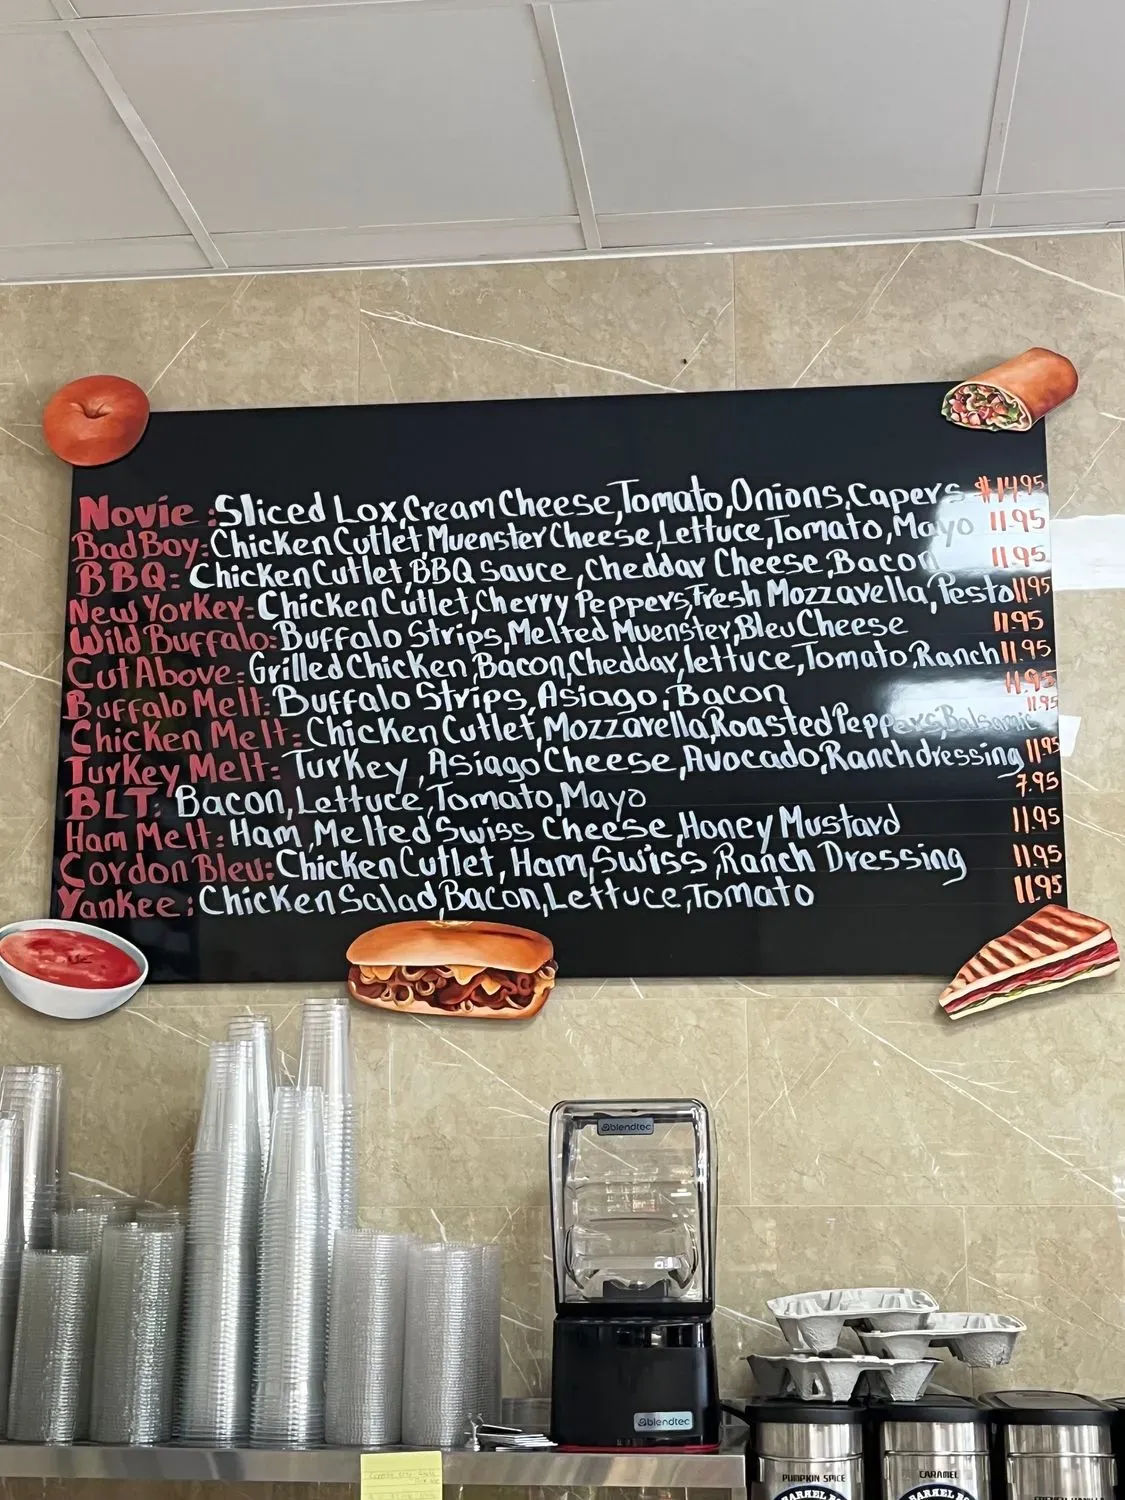 Novie: Sliced Lox, Cream Cheese, Tomato, Onions, Capers $14.95
Bad Boy: Chicken Cutlet, Muenster Cheese, Lettuce, Tomato, Mayo 11.95
BBQ: Chicken Cutlet, BBQ Sauce, Cheddar Cheese, Bacon 11.95
New Yorker: Chicken Cutlet, Cherry Peppers, Fresh Mozzarella, Pesto 11.95
Wild Buffalo: Buffalo Strips, Melted Muenster, Bleu Cheese 11.95
Cut Above: Grilled Chicken, Bacon, Cheddar, lettuce, Tomato, Ranch 11.95
Buffalo Melt: Buffalo Strips, Asiago, Bacon 11.95
Chicken Melt: Chicken Cutlet, Mozzarella, Roasted Peppers, Balsamic 11.95
Turkey Melt: Turkey, Asiago Cheese, Avocado, Ranch dressing 11.95
BLT: Bacon, Lettuce, Tomato, Mayo 7.95
Ham Melt: Ham, Melted Swiss Cheese, Honey Mustard 11.95
Cordon Bleu: Chicken Cutlet, Ham, Swiss, Ranch Dressing 11.95
Yankee: Chicken Salad, Bacon, Lettuce, Tomato 11.95
blendtec
blendtec
PUMPKIN SPICE
CARAMEL
BARREL